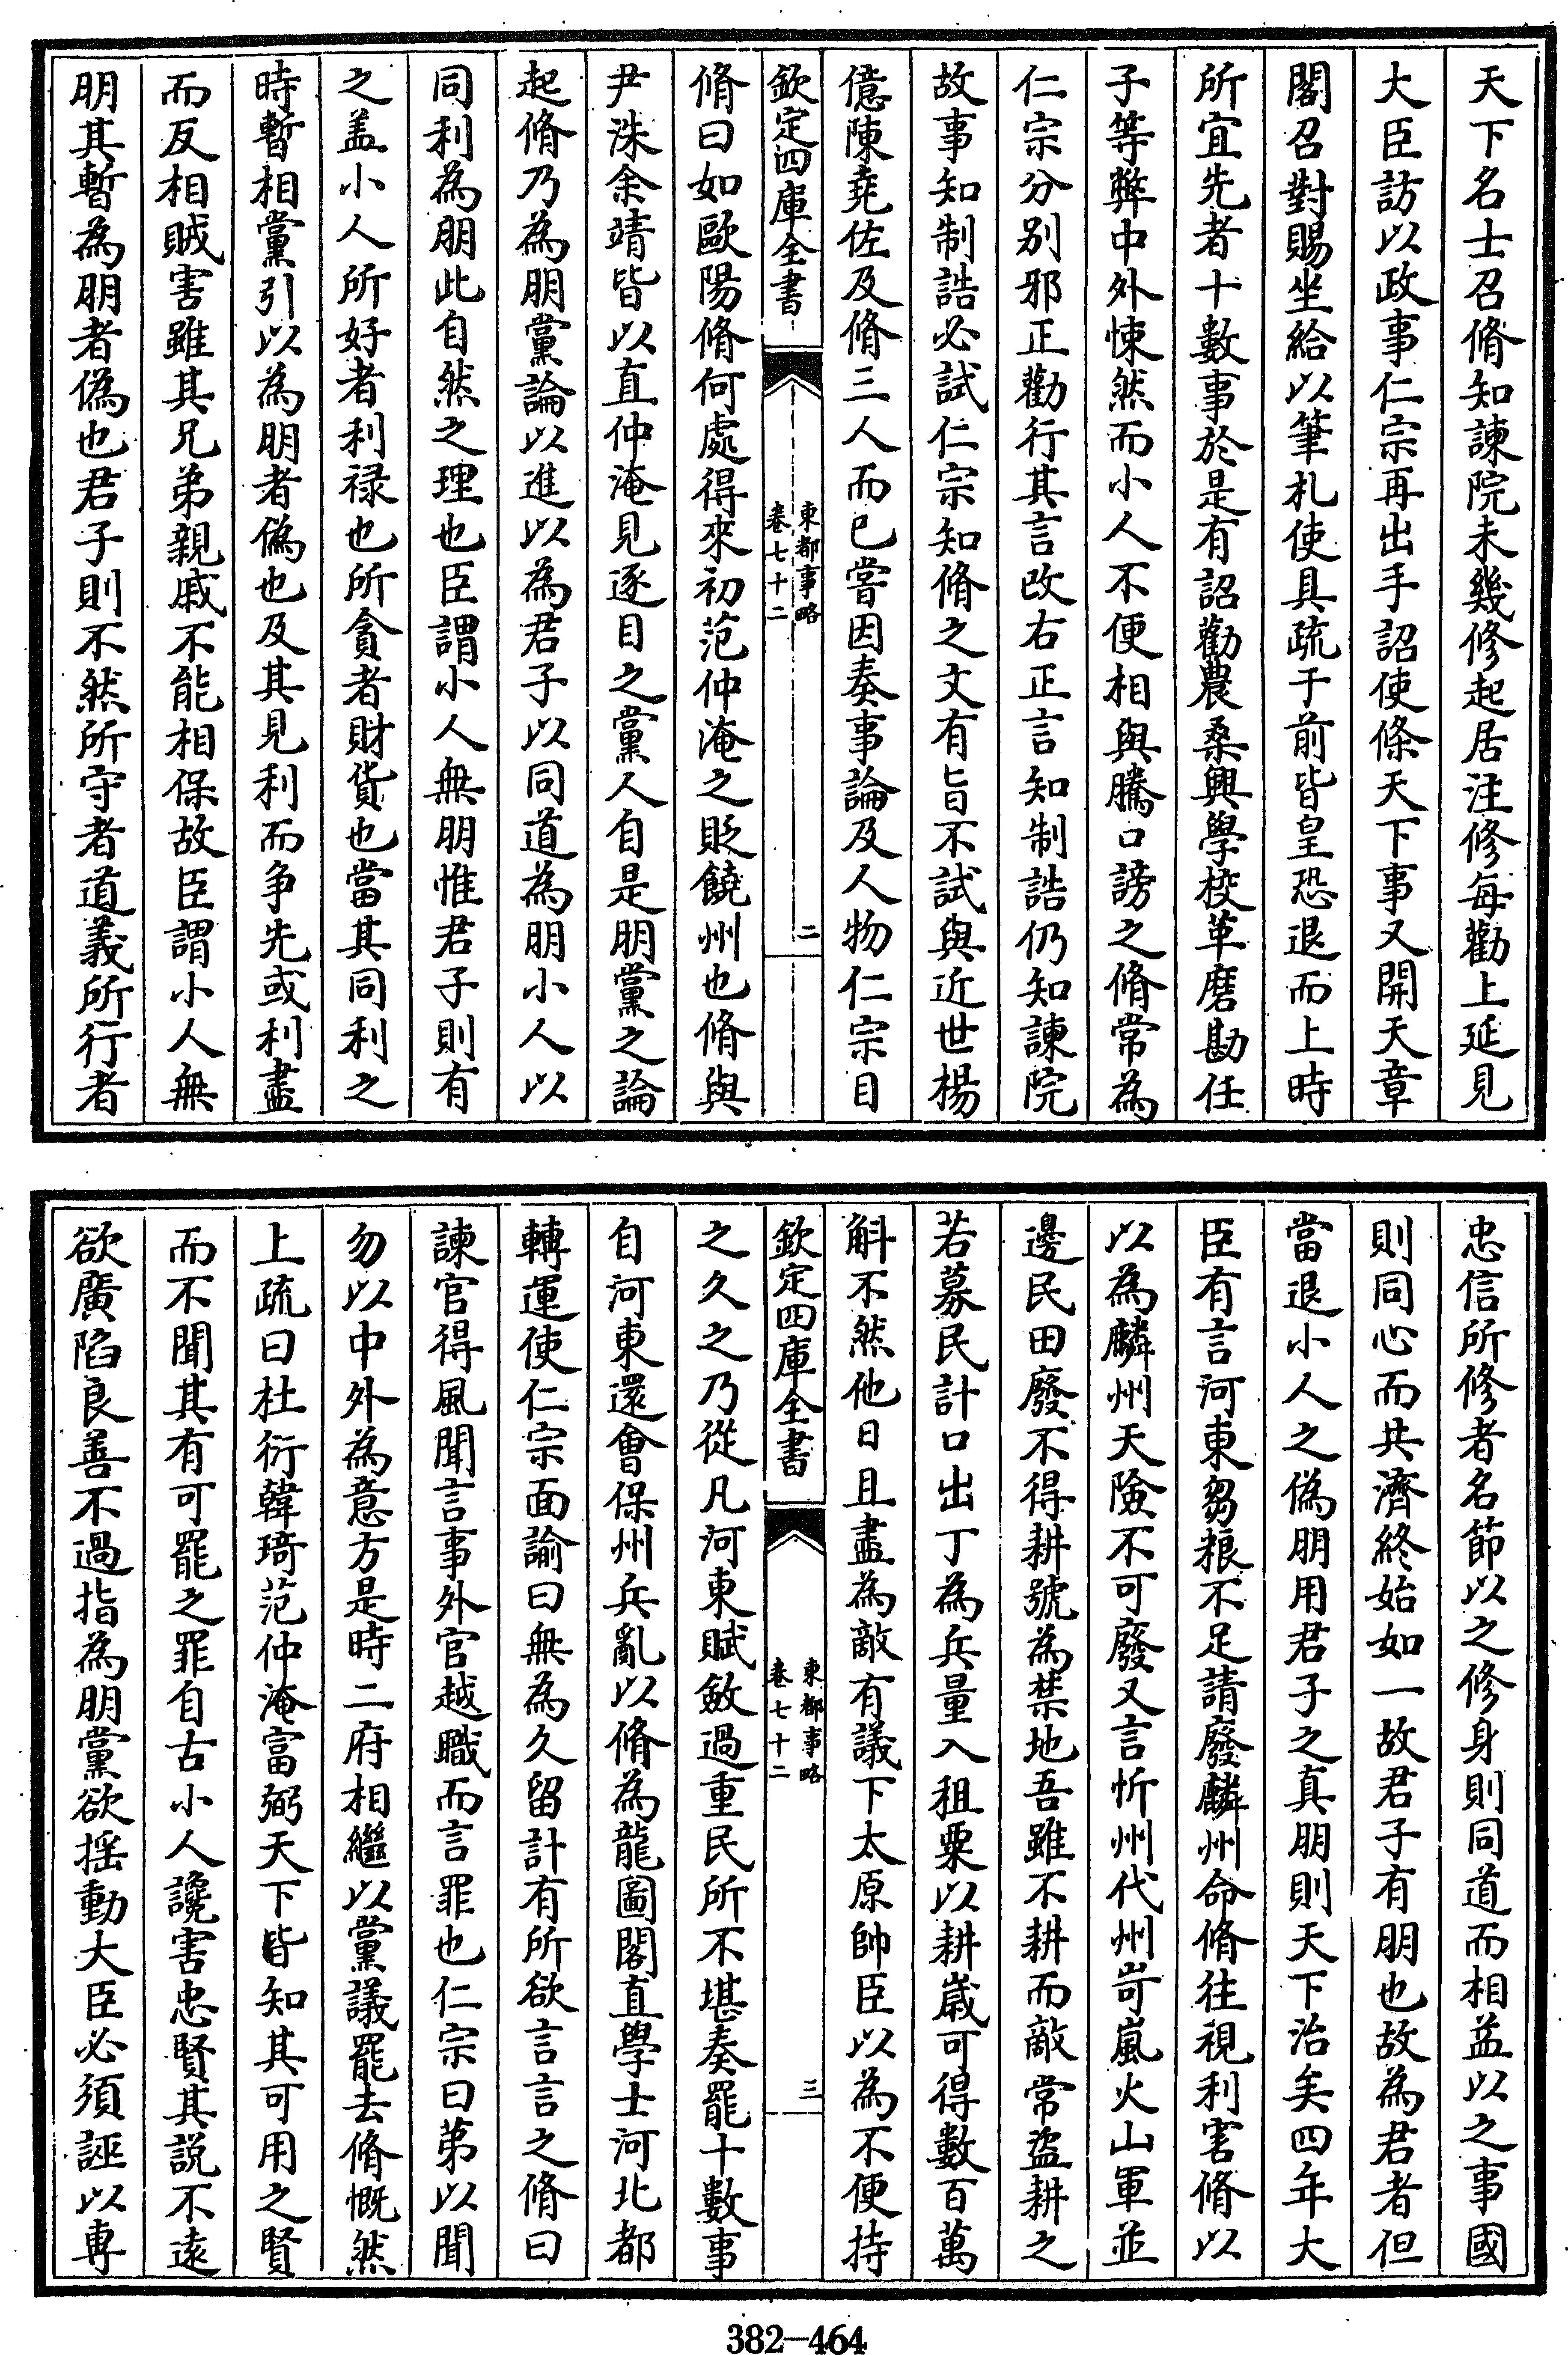 天下名士召脩知諫院未幾修起居注修每勸上延見
大臣訪以政事仁宗再出手詔使條天下事又開天章
閣召對賜坐給以筆札使具疏于前皆皇恐退而上時
所宜先者十數事於是有詔勸農桑興學校革磨勘任
子等弊中外悚然而小人不便相與騰口謗之脩常為
仁宗分別邪正勸行其言改右正言知制誥仍知諫院
故事知制誥必試仁宗知脩之文有旨不試與近世楊
億陳堯佐及脩三人而已嘗因奏事論及人物仁宗目
欽定四庫全書
東都事略
卷七十二
二
脩曰如歐陽脩何處得來初范仲淹之貶饒州也脩與
尹洙余靖皆以直仲淹見逐目之黨人自是朋黨之論
起脩乃為朋黨論以進以為君子以同道為朋小人以
同利為朋此自然之理也臣謂小人無朋惟君子則有
之盖小人所好者利禄也所貪者財貨也當其同利之
時暫相黨引以為朋者偽也及其見利而争先或利盡
而反相賊害雖其兄弟親戚不能相保故臣謂小人無
朋其暫為朋者偽也君子則不然所守者道義所行者
忠信所修者名節以之修身則同道而相益以之事國
則同心而共濟終始如一故君子有朋也故為君者但
當退小人之偽朋用君子之真朋則天下治矣四年大
臣有言河東芻粮不足請廢麟州命脩往視利害脩以
以為麟州天險不可廢又言忻州代州岢嵐火山軍並
邊民田廢不得耕號為禁地吾雖不耕而敵常盜耕之
若募民計口出丁為兵量入租粟以耕嵗可得數百萬
斛不然他日且盡為敵有議下太原帥臣以為不便持
欽定四庫全書
東都事略
卷七十二
三
之久之乃從凡河東賦斂過重民所不堪奏罷十數事
自河東還會保州兵亂以脩為龍圖閣直學士河北都
轉運使仁宗面諭曰無為久留計有所欲言言之脩曰
諫官得風聞言事外官越職而言罪也仁宗曰苐以聞
勿以中外為意方是時二府相繼以黨議罷去脩慨然
上疏曰杜衍韓琦范仲淹富弼天下皆知其可用之賢
而不聞其有可罷之罪自古小人讒害忠賢其説不遠
欲廣陷良善不過指為朋黨欲揺動大臣必須誣以專
382-464